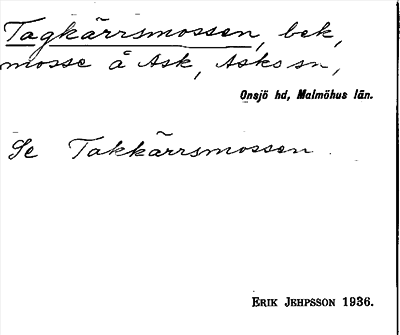 Tagkärrsmossen, bek,
mosse å Ask, Asks sn,
Onsjö hd, Malmöhus län.
Se Takkärrsmossen.
ERIK JEHPSSON 1936.